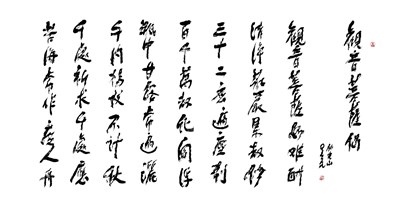 觀音菩薩偈
佛光山
星雲
觀音菩薩妙難酬
清淨莊嚴累劫修
三十二應遍塵剎
百千萬劫化閻浮
瓶中甘露常遍灑
手內楊枝不計秋
千處祈求千處應
苦海常作度人舟